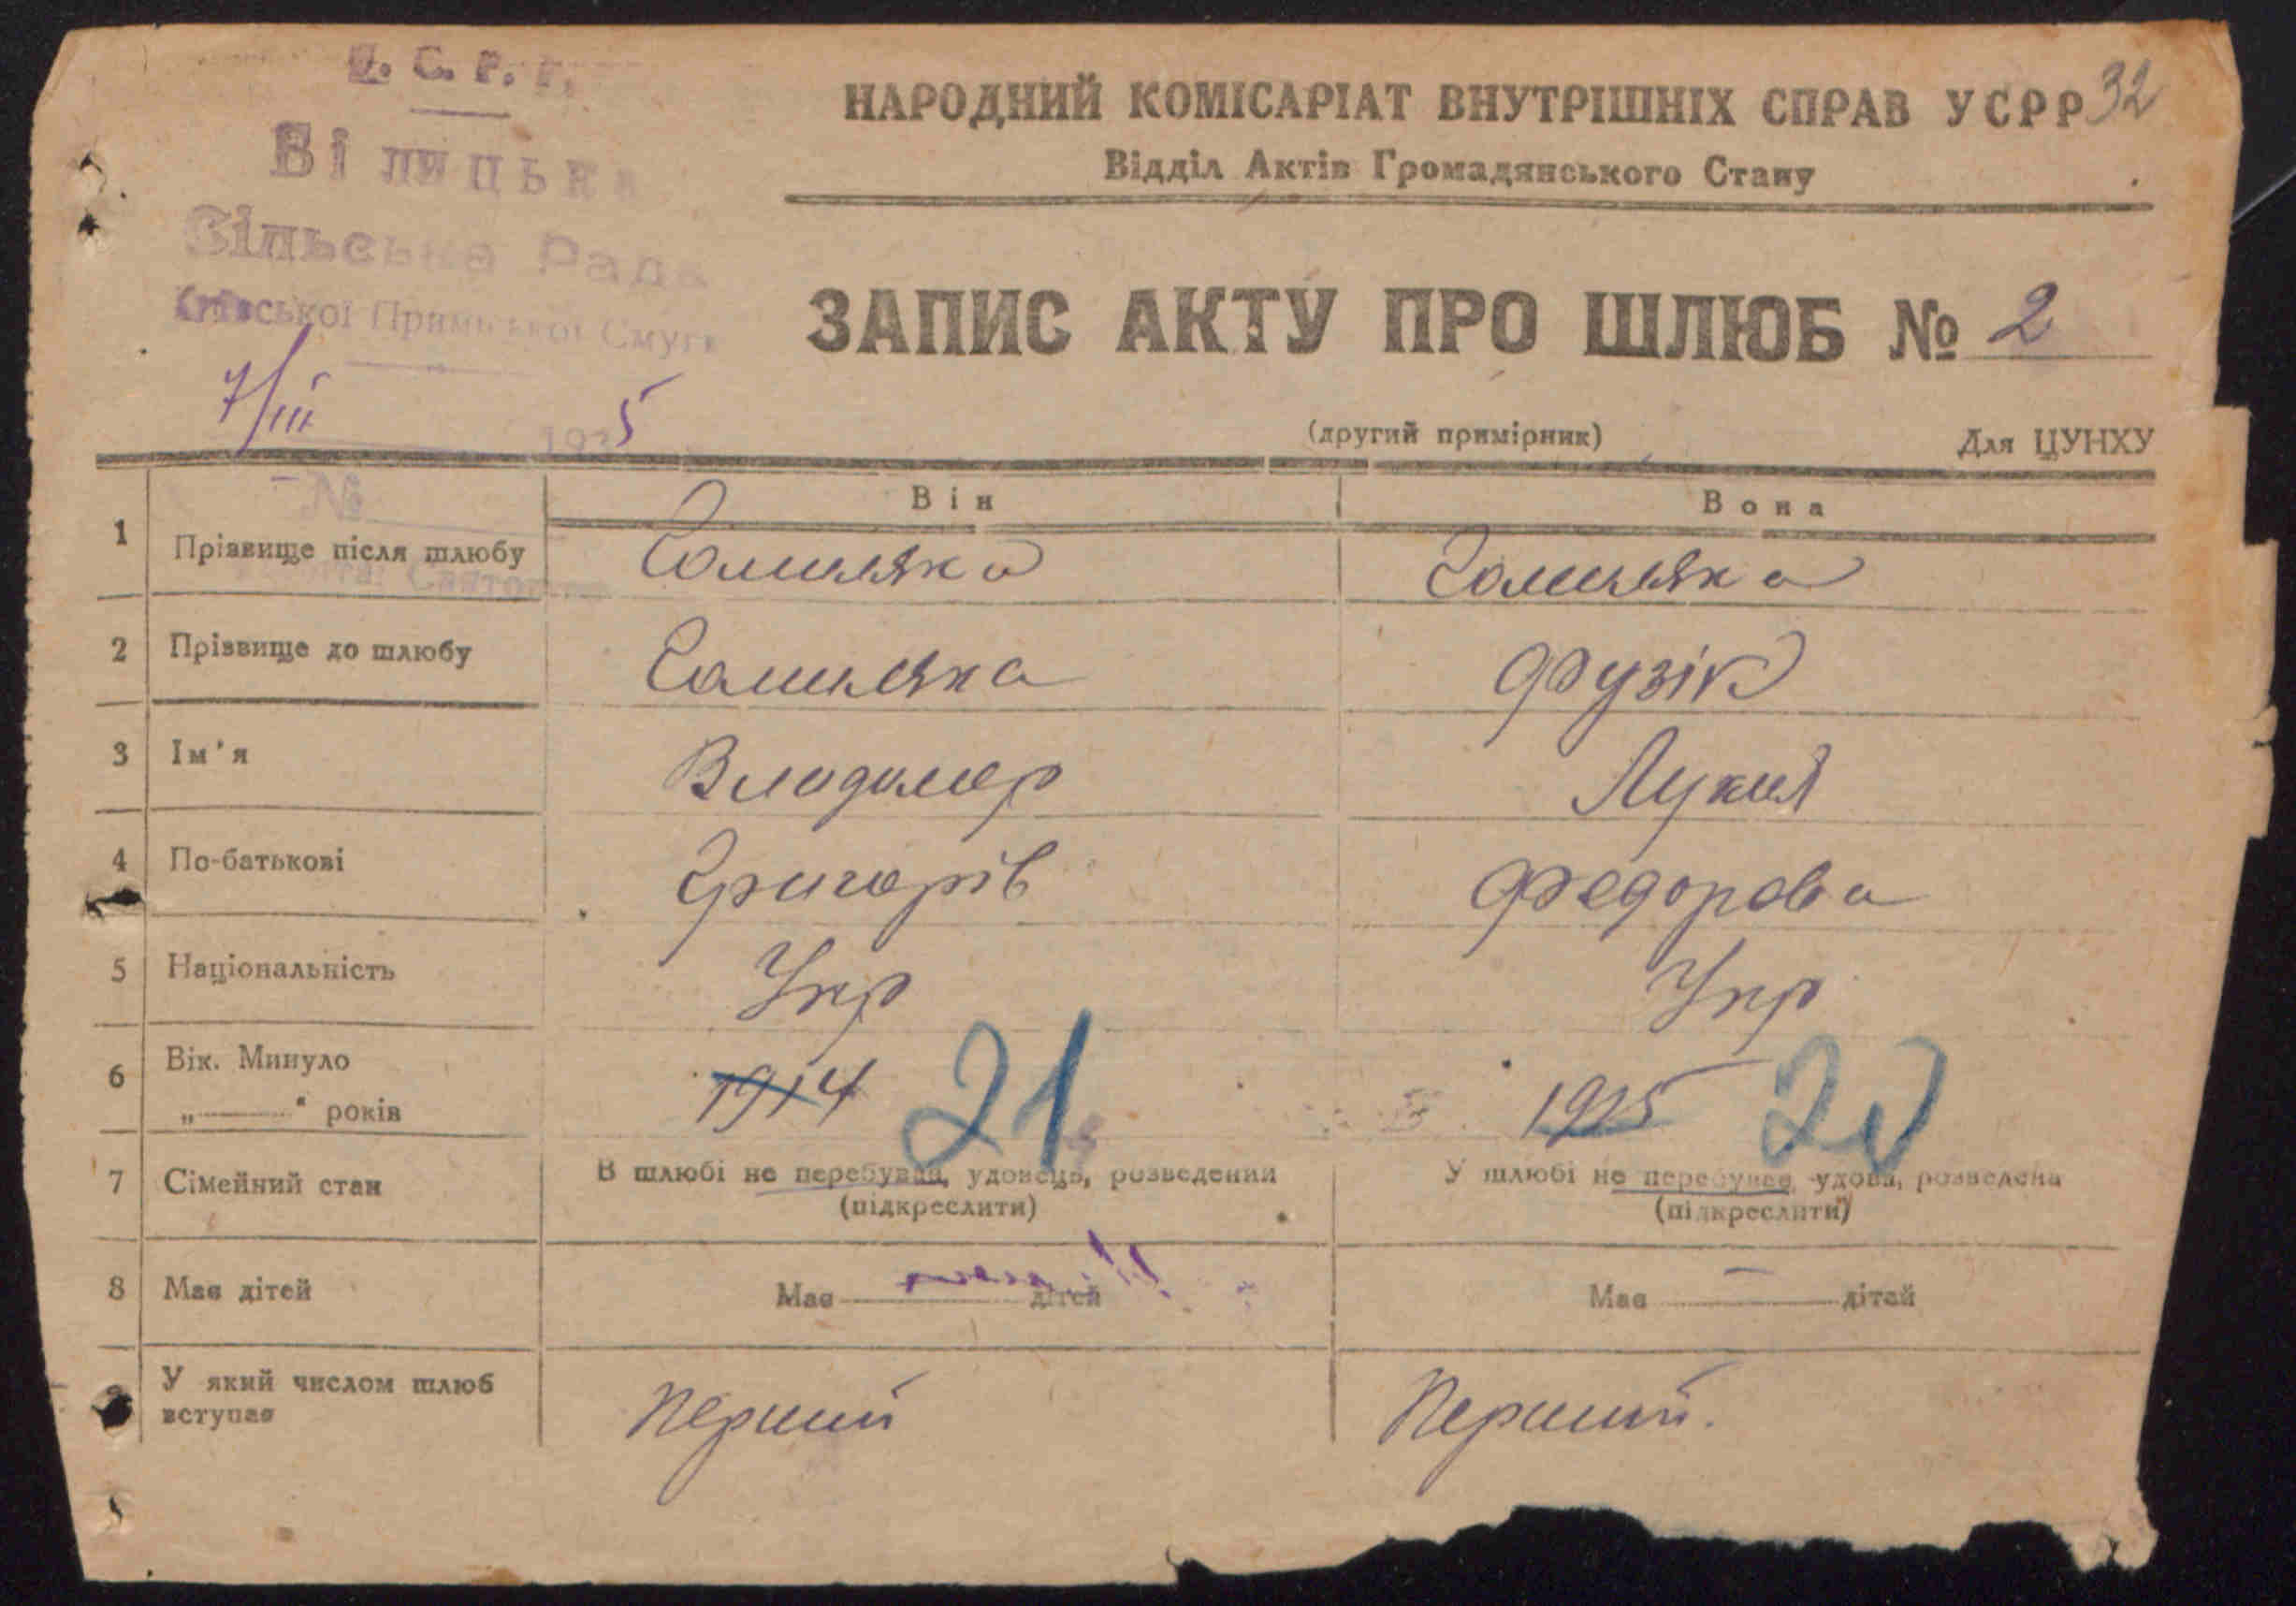 У. С. Р. Р.
Білицька
Сільська Рада
Київської Приміської Смуги
7/III 1935
№
32
НАРОДНИЙ КОМІСАРІАТ ВНУТРІШНІХ СПРАВ УСРР
Відділ Актів Громадянського Стану
ЗАПИС АКТУ ПРО ШЛЮБ № 2
(другий примірник) Для ЦУНХУ
Він Вона
1 Прізвище після шлюбу
2 Прізвище до шлюбу Фузік
3 Ім'я Владимер Лукия
4 По-батькові Григорів Федорова
5 Національність Укр Укр
6 Вік. Минуло „———“ років 1914 21 1915 20
7 Сімейний стан В шлюбі не перебував, удовець, розведений (підкреслити) У шлюбі не перебував, удова, розведена (підкреслити)
8 Має дітей Має дітей Має — дітей
У який числом шлюб вступає Перший Перший.